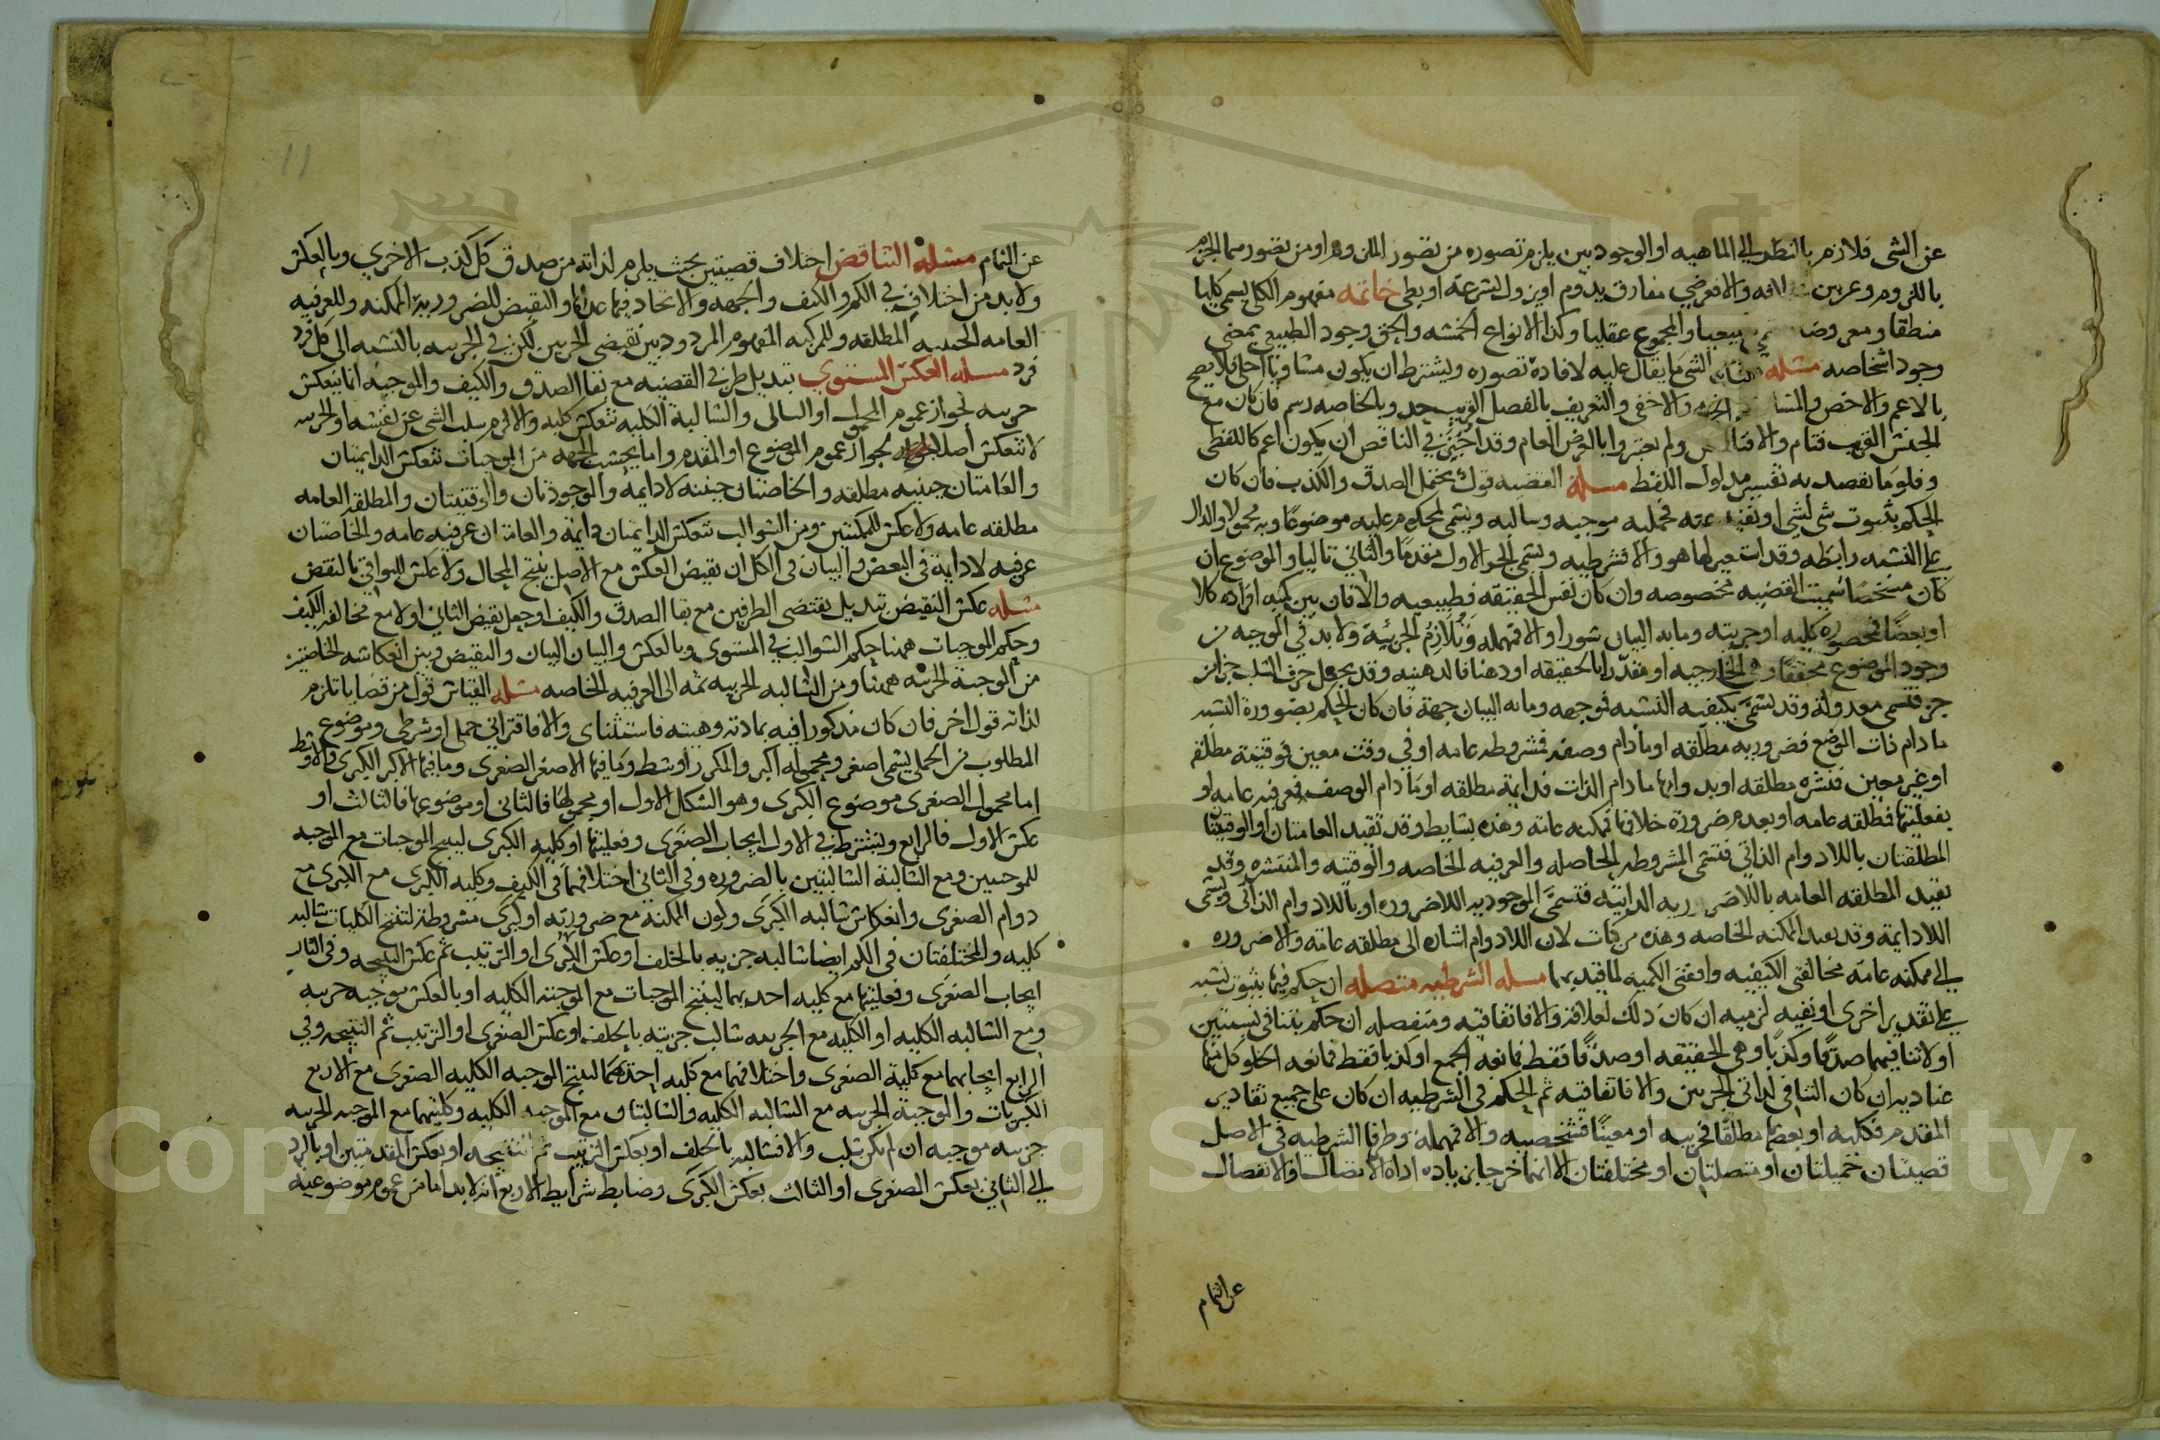 عن الشى فلازم بالنظر الى الماهيه او الوجود بين يلزم تصوره من تصور الملزوم او من تصورهما الجزم
باللزوم وغير بين بخلافه والا فعرضي مفارق يدوم او يزول بسرعة او بطى خاتمه مفهوم الكلى يسمى كليا
منطقيا ومعروضه طبيعيا والمجموع عقليا وكذا الانواع الخمسه والحق وجود الطبيعى بمعنى
وجود اشخاصه مسئله الشى ما يقال عليه لافادة تصوره ويشترط ان يكون مساويا اجلى فلا يصح
بالاعم والاخص والمساوى معرفة والاخفى والتعريف بالفصل القريب حد وبالخاصه رسم فان كان مع
الجنس القريب فتام والا فناقص ولم يعتبروا بالعرض العام وقد اجيز في الناقص ان يكون اعم كاللفظى
وهو ما يقصد به تفسير مدلول اللفظ مسئله القضيه قول يحتمل الصدق والكذب فان كان
الحكم بثبوت شى لشى او نفيه عنه فحمليه موجبه وسالبه ويسمى المحكوم عليه موضوعا وبه محمولا والدال
على النسبه رابطه وقد استعير لها هو والا فشرطيه ويسمى الجزء الاول مقدما والثاني تاليا والموضوع ان
كان مشخصا سميت القضيه مخصوصه وان كان نفس الحقيقه فطبيعيه والا فان بين كميه افراده كلا
او بعضا فمحصوره كليه او جزيته وما به البيان سورا والا فمهمله وتلازم الجزئية ولا بد في الموجبه من
وجود الموضوع محققا وهى الخارجيه او مقدرا بالحقيقه او ذهنا فالذهنيه وقد يجعل حرف السلب جزا من
جز فتسمى معدولة وقد يصرح بكيفيه النسبه فموجهه وما به البيان جهة فان كان الحكم بضرورة النسبه
ما دام ذات الموضع فضروريه مطلقه او ما دام وصفه فمشروطه عامه او في وقت معين فوقتية مطلقه
او غير معين فمنتشره مطلقه او بدوامها ما دام الذات فدايمة مطلقه او ما دام الوصف فعرفيه عامه او
بفعليتها فمطلقه عامه او بعدم ضروره خلافها فممكنه عامه وهذه بسايط وقد تقيد العامتان او الوقتيتان
المطلقتان باللادوام الذاتي فتسمى المشروطه الخاصه والعرفيه الخاصه والوقتيه والمنتشره وقد
تقيد المطلقه العامه باللاضروريه الذاتيه فتسمى الوجوديه اللاضروره او باللادوام الذاتى وتسمى
اللادايمة وقد تقيد الممكنه الخاصه وهذه مركبات لان اللادوام اشاره الى مطلقه عامه واللاضروره
الى ممكنه عامه مخالفتى الكيفيه وافقتى الكميه لما قيد بهما مسله الشرطيه متصله ان حكم فيها بثبوت نسبه
على تقدير اخرى او نفيه لزوميه ان كان ذلك لعلاقة والا فاتفاقيه ومنفصله ان حكم بتنافى نسبتين
او لا تنافيهما صدقا وكذبا وهي الحقيقه او صدقا فقط فمانعه الجمع او كذبا فقط فمانعه الخلو وكل منها
عناديه ان كان التنافي لذاتي الجزيين والا فاتفاقيه ثم الحكم في الشرطيه ان كان على جميع تقادير
المقدم فكليه او بعضها مطلقا فجزييه او معينا فشخصيه والا فمهمله وطرفا الشرطيه فى الاصل
قضيتان حمليتان او متصلتان او مختلفتان الا انهما خرجا بزياده اداه الاتصال والانفصال
عن التمام
عن التمام مسئله التناقض اختلاف قضيتين بحيث يلزم لذاته من صدق كل كذب الاخرى وبالعكس
ولا بد من اختلاف في الكم والكيف والجهه والاتحاد فيما عداها والنقيض للضرورية الممكنه وللعرفيه
العامه الحينيه المطلقه وللمركبه المفهوم المردود بين نقيضى الجزيين لكن في الجزييه بالنسبه الى كل فرد
فرد مسئله العكس المستوي تبديل طرفي القضيه مع بقا الصدق والكيف والموجبه انما تنعكش
جزييه لجواز عموم المحمول او التالى والسالبة الكليه تنعكس كليه والا لزم سلب الشى عن نفسه والجزييه
لا تنعكس أصلا لجواز عموم الموضوع او المقدم واما بحسب الجهه من الموجبات تنعكس الدايمتان
والعامتان حينيه مطلقه والخاصتان حينيه لادايمه والوجوديتان والوقتيتان والمطلقه العامه
مطلقه عامه ولا عكس للممكنتين ومن السوالب تنعكس الدايمتان دايمه والعامتان عرفيه عامه والخاصتان
عرفيه لادايمة فى البعض والبيان فى الكل ان نقيض العكس مع الاصل ينتج المحال ولا عكس للبواقي بالنقض
مسله عكس النقيض تبديل نقيضى الطرفين مع بقا الصدق والكيف او جعل نقيض الثاني اولا مع مخالفه الكيف
وحكم الموجبات ههنا حكم السوالب في المستوى وبالعكس والبيان البيان والنقيض وبين انعكاس الخاصتين
من الموجبة الجزييه ههنا ومن السالبه الجزييه ثمه الى العرفيه الخاصه مسله القياس قول من قضايا تلزم
لذاته قول اخر فان كان مذكورا فيه بمادته وهيته فاستثناى والا فاقتراني حملى او شرطى وموضوع
المطلوب من الحملى يسمى اصغر ومحموله اكبر والمكرر اوسط وما فيها الاصغر الصغرى وما فيها الاكبر الكبرى والاوسط
اما محمول الصغرى موضوع الكبرى وهو الشكل الاول او محمولهما فالثانى او موضوعهما فالثالث او
عكس الاول فالرابع ويشترط في الاول ايجاب الصغرى وفعليتها وكليه الكبرى لينتج الموجبات مع الموجبه
للموجبتين ومع السالبة السالبتين بالضروره وفي الثانى اختلافهما فى الكيف وكليه الكبرى مع
دوام الصغرى وانعكاس سالبه الكبرى وكون الممكنه مع ضروريه او كبرى مشروطه لتنتج الكليات سالبه
كليه والمختلفتان فى الكم ايضا سالبه جزييه بالخلف او عكس الكبرى او الترتيب ثم عكس النتيجه وفى الثالث
ايجاب الصغرى وفعليتها مع كليه احديهما لينتج الموجبات مع الموجبه الكليه او بالعكس موجبه جزييه
ومع السالبه الكليه او الكليه مع الجزييه سالبه جزيته بالخلف او عكس الصغرى او الترتيب ثم النتيجه وفي
الرابع ايجابهما مع كلية الصغرى واختلافهما مع كليه احديهما لينتج الموجبه الكليه الصغرى مع الاربع
الكبريات والموجبة الجزييه مع السالبه الكليه والسالبتان مع الموجبه الكليه وكليتهما مع الموجبه الجزييه
جزييه موجبه ان لم يكن سلب والا فسالبه بالخلف او بعكس الترتيب ثم النتيجه او بعكس المقدمتين او بالرد
الى الثاني بعكس الصغرى او الثالث بعكس الكبرى وضابط شرايط الاربع انه لا بد اما من عموم موضوعيه